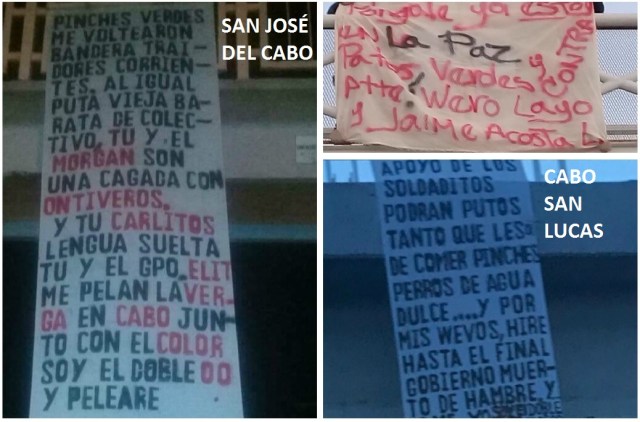 SAN JOSÉ
DEL CABO
PINCHES VERDES
ME VOLTEARON
BANDERA TRAI-
DORES CORRIEN-
TES. AL IGUAL
PUTA VIEJA BA-
RATA DE COLEC-
TIVO, TU Y EL
MORGAN SON
UNA CAGADA CON
ONTIVEROS.
Y TU CARLITOS
LENGUA SUELTA
TU Y EL GPO. ELIT
ME PELAN LA VER-
GA EN CABO JUN-
TO CON EL COLOR
SOY EL DOBLE OO
Y PELEARE
ya
EN La Paz
Patos Verdes y CONTRA
Atte: Wero Layo
y Jaime Acosta L.
CABO
SAN
LUCAS
APOYO DE LOS
SOLDADITOS
PODRAN PUTOS
TANTO QUE LES
DE COMER PINCHES
PERROS DE AGUA
DULCE....Y POR
MIS WEVOS, HIRE
HASTA EL FINAL
GOBIERNO MUER-
TO DE HAMBRE, Y